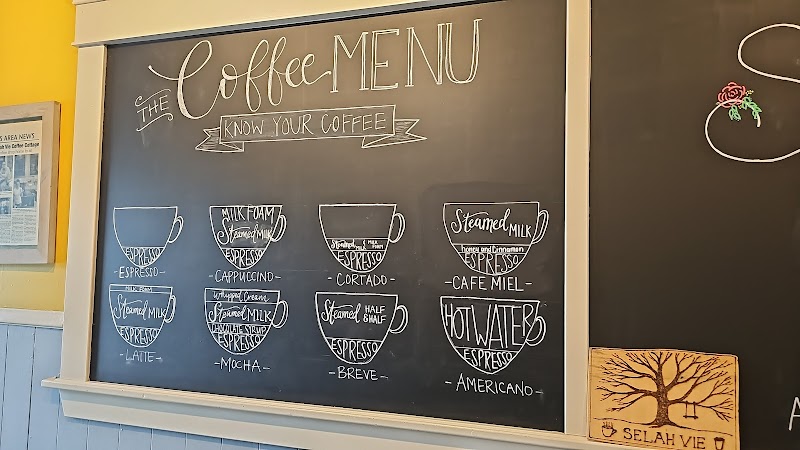 THE Coffee MENU
KNOW YOUR COFFEE
ESPRESSO
- ESPRESSO -
MILK FOAM
Steamed MILK
ESPRESSO
- CAPPUCCINO -
Steamed MILK
MILK FOAM
ESPRESSO
- CORTADO -
Steamed MILK
honey and Cinnamon
ESPRESSO
- CAFE MIEL -
MILK FOAM
Steamed MILK
ESPRESSO
- LATTE -
Whipped Cream
Steamed MILK
CHOCOLATE SYRUP
ESPRESSO
- MOCHA -
Steamed HALF & HALF
ESPRESSO
- BREVE -
HOT WATER
ESPRESSO
- AMERICANO -
AREA NEWS
Coffee Cottage
S
SELAH VIE
A